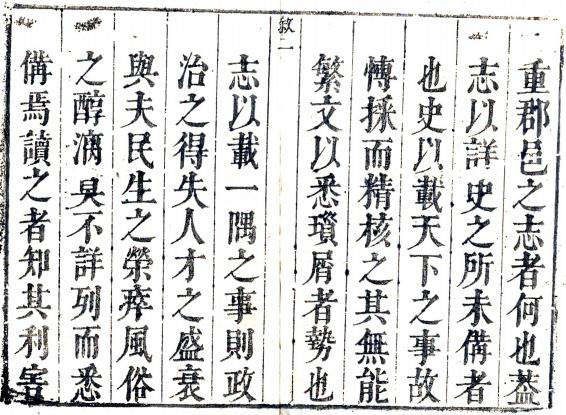 重郡邑之志者何也葢
志以詳史之所未備者
也史以載天下之事故
慱採而精核之其無能
繁文以悉瑣屑者勢也
敘二
志以載一隅之事則政
治之得失人才之盛衰
與夫民生之榮瘁風俗
之醇漓不詳列而悉
備焉讀之者知其利害